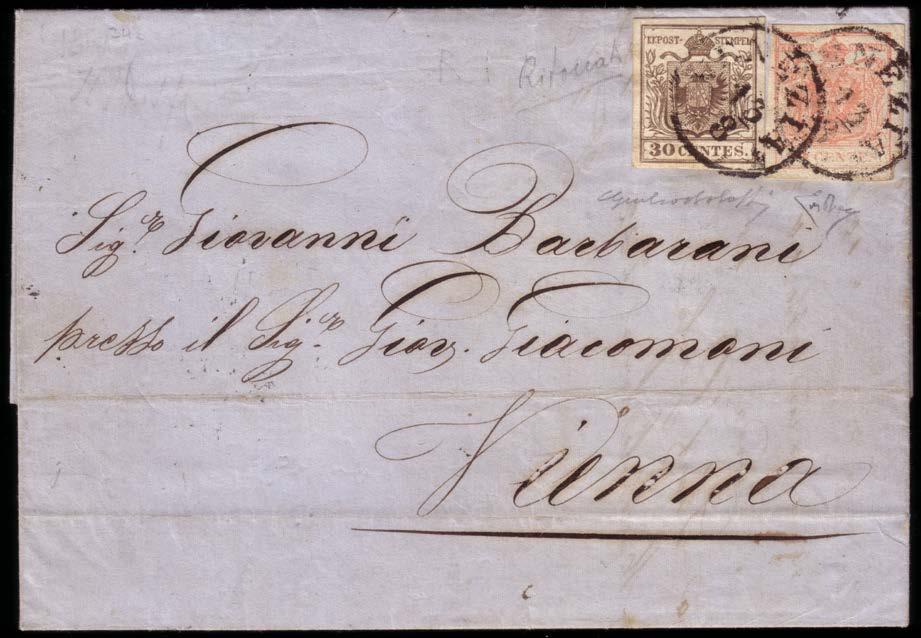 K.K.POST-STEMPEL
30 CENTES.
CENTES
VENEZIA
Sig.r Giovanni Barbarani
presso il Sig.r Giov. Giacomoni
Vienna